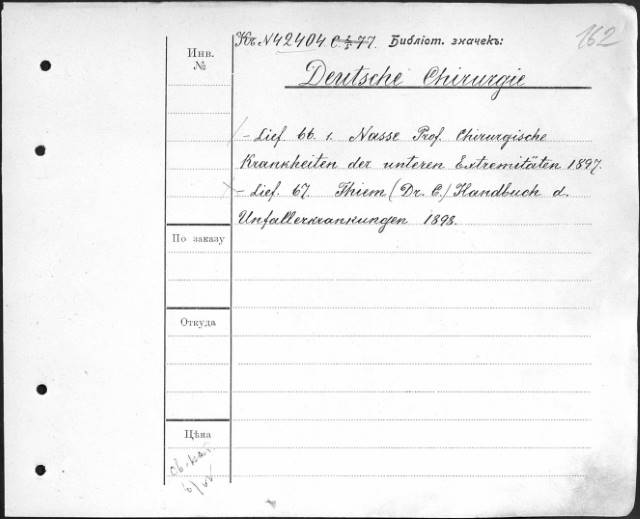 162
Къ N 42404. Библіот. значекъ:
Инв. №
Deutsche Chirurgie
– Lief. 66. 1. Nasse Prof. Chirurgische
Krankheiten der unteren Extremitäten 1897.
– Lief. 67. Thiem (Dr. C.) Handbuch d.
Unfallerkrankungen 1898.
По заказу
Откуда
Цѣна